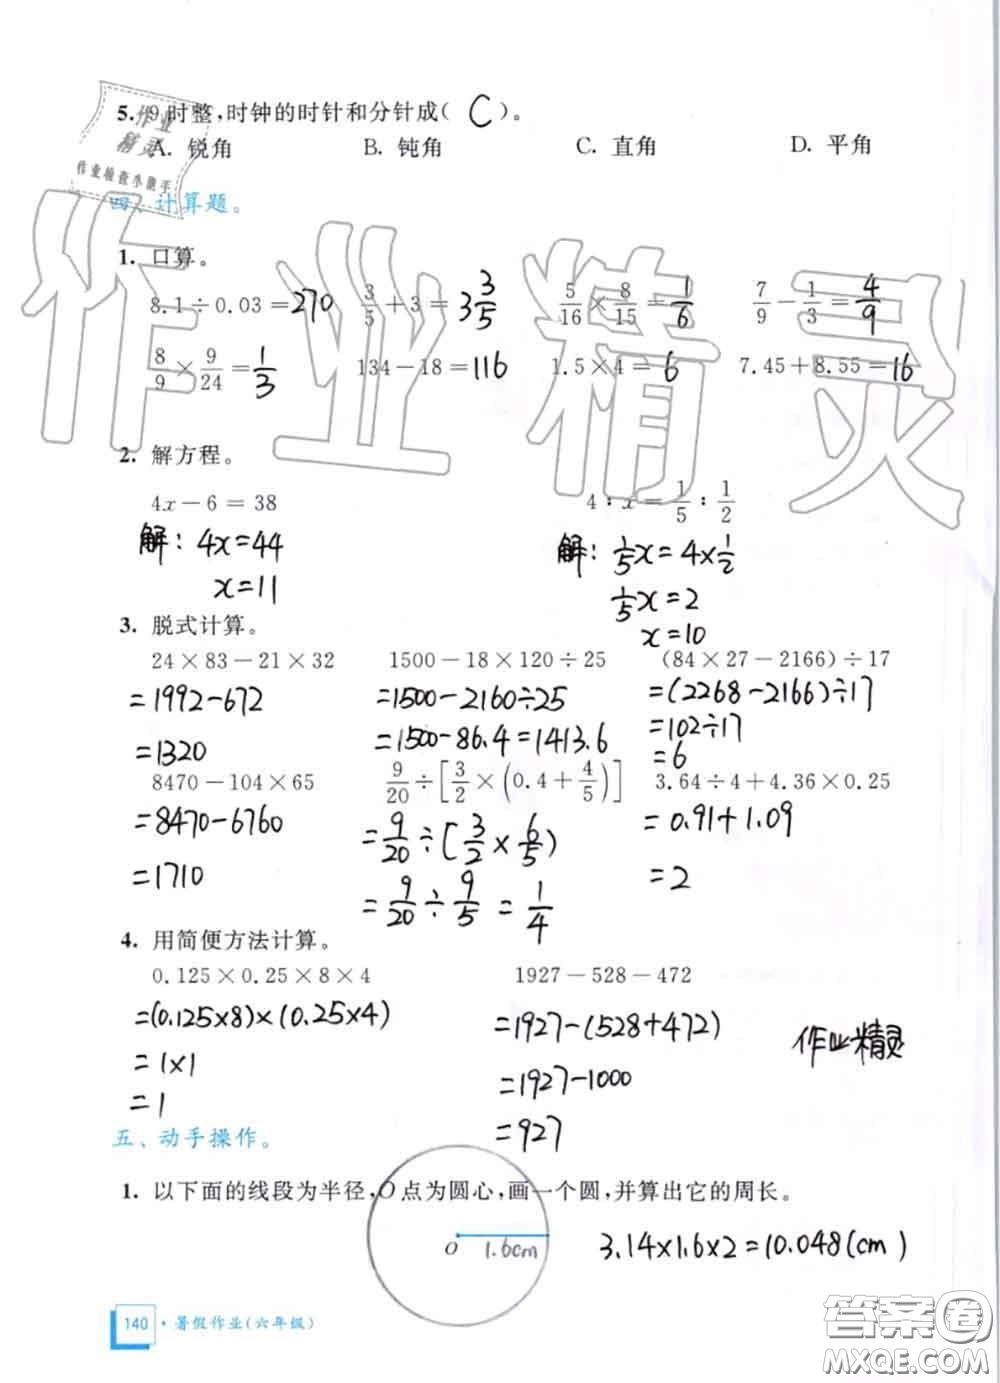 5. 9时整，时钟的时针和分针成( C )。
A. 锐角 B. 钝角 C. 直角 D. 平角
作业
精灵
作业检查小能手
四、计算题。
作业精灵
1. 口算。
8.1÷0.03=270 3/5+3=3 3/5 5/16×8/15=1/6 7/9-1/3=4/9
8/9×9/24=1/3 134-18=116 1.5×4=6 7.45+8.55=16
2. 解方程。
4x-6=38 4:x=1/5:1/2
解: 4x=44 解: 1/5x=4×1/2
x=11 1/5x=2
x=10
3. 脱式计算。
24×83-21×32 1500-18×120÷25 (84×27-2166)÷17
=1992-672 =1500-2160÷25 =(2268-2166)÷17
=102÷17
=1320 =1500-86.4=1413.6 =6
8470-104×65 9/20÷[3/2×(0.4+4/5)] 3.64÷4+4.36×0.25
=8470-6760 =9/20÷[3/2×6/5) =0.91+1.09
=1710 =9/20÷9/5=1/4 =2
4. 用简便方法计算。
0.125×0.25×8×4 1927-528-472
=(0.125×8)×(0.25×4) =1927-(528+472)
作业精灵
=1×1 =1927-1000
=1 =927
五、动手操作。
1. 以下面的线段为半径,O点为圆心,画一个圆,并算出它的周长。
O 1.6cm 3.14×1.6×2=10.048(cm)
140 · 暑假作业(六年级)
答案圈
MXQE.COM